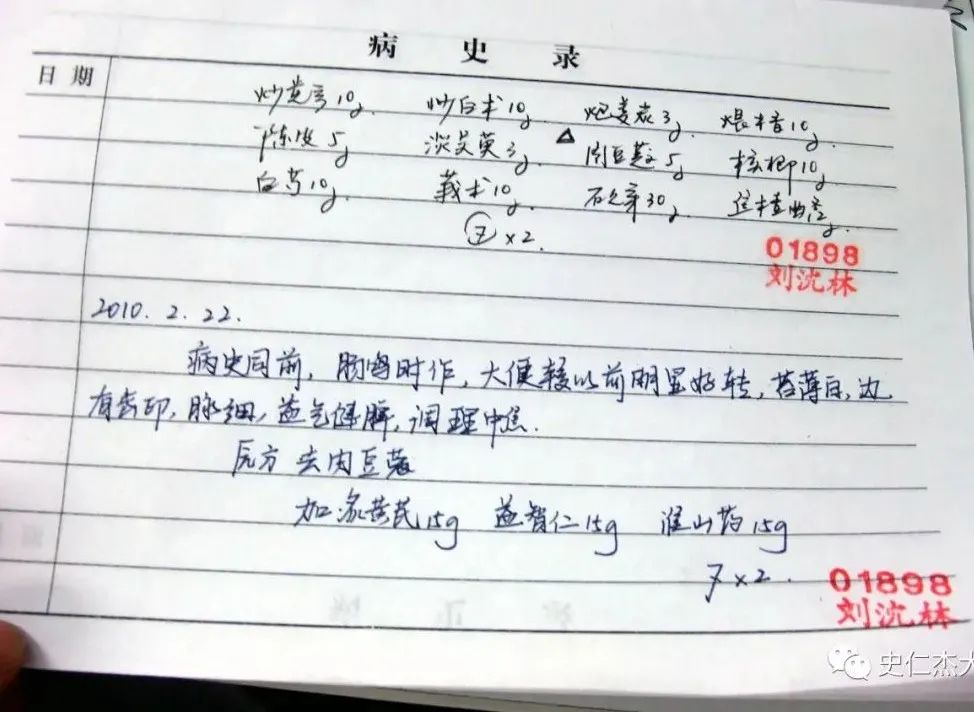 病史录
日期
炒黄芩10g 炒白术10g 炮姜炭3g 煨木香10g
陈皮5g 淡吴萸3g △肉豆蔻5g 槟榔10g
白芍10g 莪术10g 石久穿30g 焦楂曲各g
⑦×2.
01898
刘沈林
2010.2.22.
病史同前,肠鸣时作,大便较以前明显好转,苔薄白,边
有齿印,脉细,益气健脾,调理中焦.
原方 去肉豆蔻
加炙黄芪15g 益智仁15g 淮山药15g
7×2.
01898
刘沈林
史仁杰大